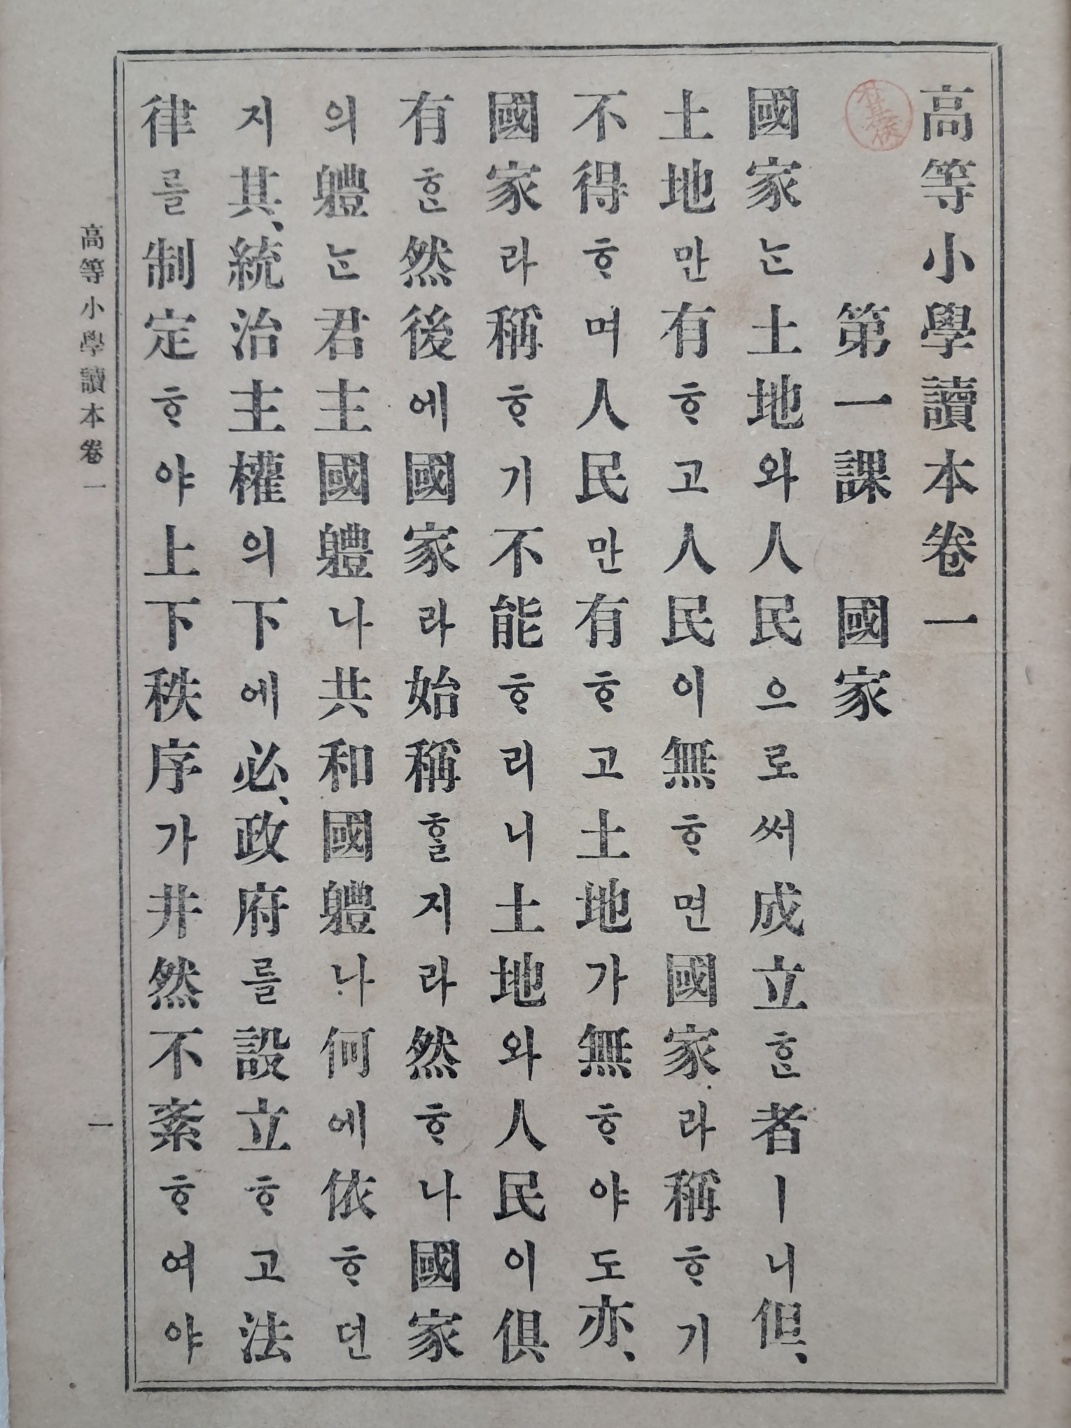 高等小學讀本卷一
第一課 國家
國家는土地와人民으로써成立ᄒᆞᆫ者ㅣ니但、
土地만有ᄒᆞ고人民이無ᄒᆞ면國家라稱ᄒᆞ기
不得ᄒᆞ며人民만有ᄒᆞ고土地가無ᄒᆞ야도亦、
國家라稱ᄒᆞ기不能ᄒᆞ리니土地와人民이俱
有ᄒᆞᆫ然後에國家라始稱ᄒᆞᆯ지라然ᄒᆞ나國家
의軆는君主國軆나共和國軆나何에依ᄒᆞ던
지其、統治主權의下에必、政府를設立ᄒᆞ고法
律를制定ᄒᆞ야上下秩序가井然不紊ᄒᆞ여야
高等小學讀本卷一
一